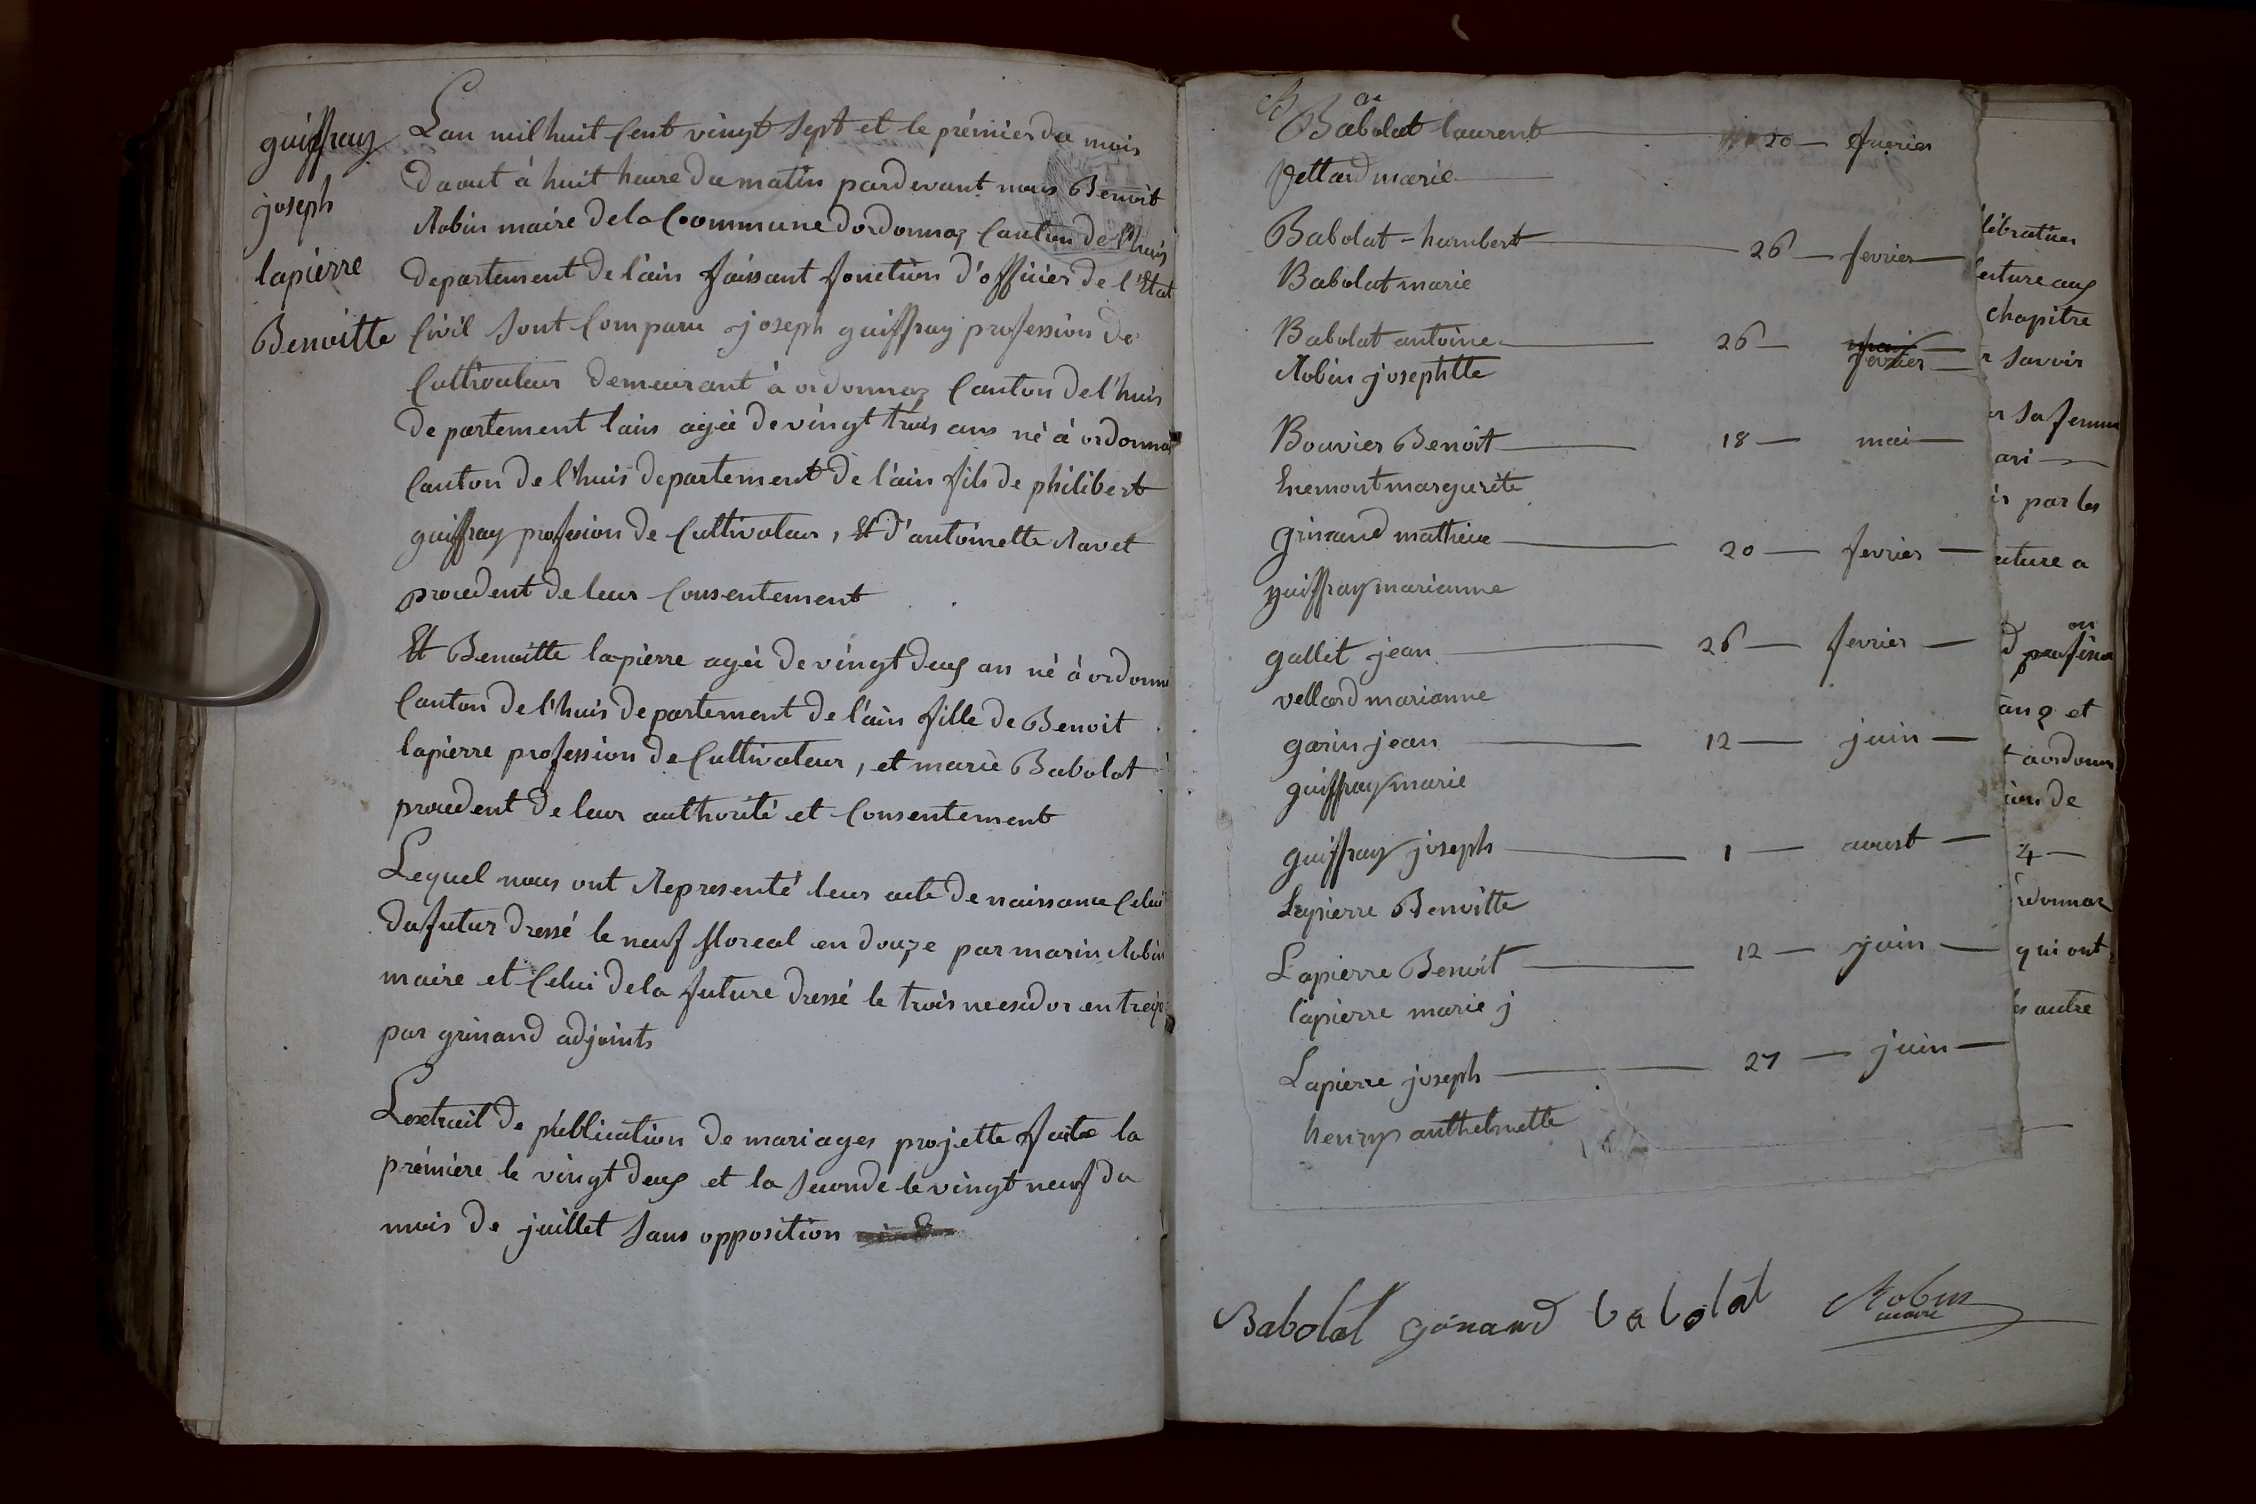 guiffray
joseph
lapierre
Benoitte
Lan mil huit Cent vingt Sept et le prémier du mois
daout à huit heure du matin pardevant nous Benoit
Robin maire de la Commune dordonnaz Canton de l'huis
departement de l'ain faissant fonction d'officier de l'Etat
Civil Sont Comparu joseph guiffray profession de
Cultivateur demeurant à ordonnaz Canton de l'huis
departement lain agéé de vingt trois ans né à ordonnaz
Canton de l'huis departement de l'ain fils de philibert
guiffray profession de Cultivateur, Et d'antoinette Ravet
procedent de leur Consentement
Et Benoitte lapierre agéé de vingt deux an né à ordonn
Canton de l'huis departement de l'ain fille de Benoit
lapierre profession de Cultivateur, et marie Babolat
procedent de leur authorité et Consentement
Lequel nous ont Representé leur acte de naissance Celui
du futur dressé le neuf floreal en douze par marin Robin
maire et Celui de la future dressé le trois messidor en treize
par grinand adjoints
Lextrait de publication de mariages projette faite la
prémiere le vingt deux et la Seconde le vingt neuf du
mois de juillet Sans opposition
Babolat laurent 20 fevrier
vettard marie
Babolat - humbert 26 fevrier
Babolat marie
Babolat antoine 26 fevrier
Robin josephtte
Bouvier Benoit 18 mai
Enemont margurite
grinand mathieu 20 fevrier
guiffray marianne
gallet jean 26 fevrier
vellard marianne
garin jean 12 juin
guiffray marie
guiffray joseph 1 aoust
Lapierre Benoitte
Lapierre Benoit 12 juin
lapierre marie j
Lapierre joseph 27 juin
henry anthelmette
chapitre
r savoir
r sa femme
ari
ir par les
ature a
on
et
à ordonn
de
4
rdonnaz
qui ont
es autre
Babolat ginand babolat Robin
maire